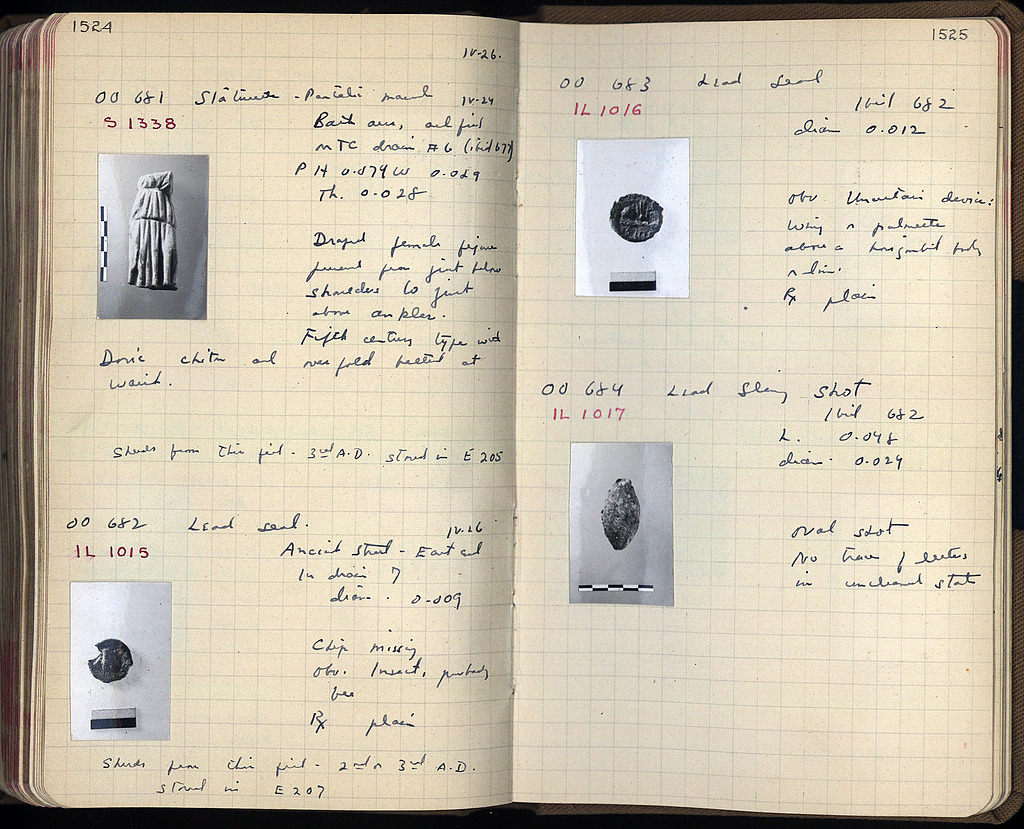 1524
IV-26.
OO 681 Statuette - Pentelic marble IV-24
S 1338
Bath area, and fill
in TC drain #6 (ibid 677)
P H 0.079 W 0.029
Th. 0.028
Draped female figure
preserved from just below
shoulders to just
above ankles.
Fifth century type with
Doric chiton and overfold belted at
waist.
Sherds from this fill - 3rd A.D. stored in E 205
OO 682 Lead seal. IV-26
IL 1015
Ancient street - East end
In drain 7
diam. 0.009
Chip missing
Obv. Insect, probably
bee
Rx plain
Sherds from this fill - 2nd or 3rd A.D.
stored in E 207
1525
OO 683 Lead Seal
IL 1016
Ibid 682
diam 0.012
Obv Uncertain device:
Wing or palmette
above a horizontal body
or line.
Rx plain
OO 684 Lead Sling Shot
IL 1017
Ibid 682
L. 0.048
diam. 0.029
Oval shot
No trace of letters
in uncleaned state